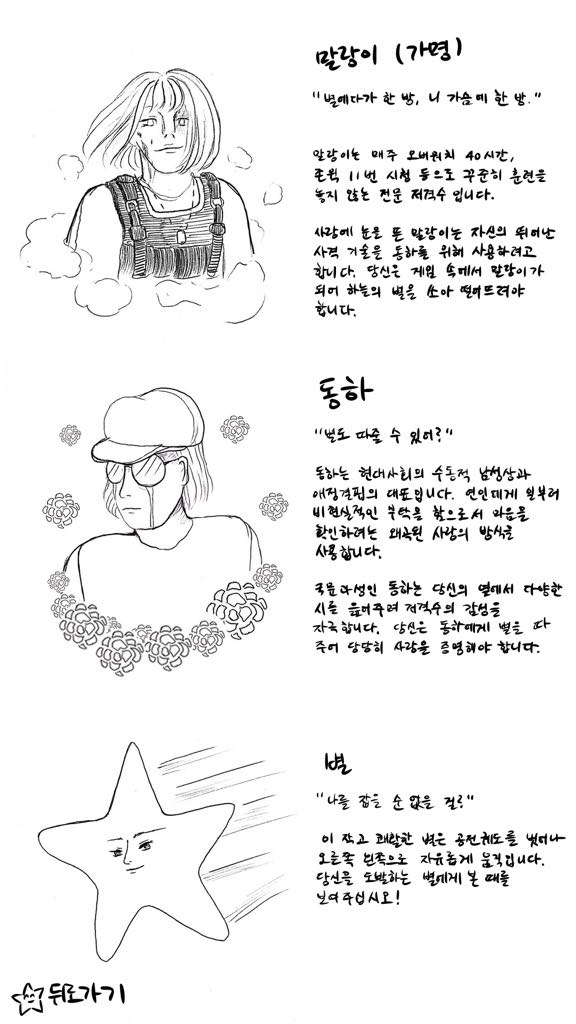 말랑이 (가명)
"별에다가 한 방, 니 가슴에 한 방."
말랑이는 매주 오버워치 40시간,
토익 11번 시험 등으로 꾸준히 훈련을
놓지 않는 전문 저격수 입니다.
사랑에 눈을 뜬 말랑이는 자신의 뛰어난
사격 기술을 동하를 위해 사용하려고
합니다. 당신은 게임 속에서 말랑이가
되어 하늘의 별을 쏘아 떨어뜨려야
합니다.
동하
"별도 따줄 수 있어?"
동하는 현대사회의 수동적 남성상과
애정결핍의 대표입니다. 연인에게 일부러
비현실적인 부탁을 함으로서 마음을
확인하려는 왜곡된 사랑의 방식을
사용합니다.
국문과생인 동하는 당신의 옆에서 다양한
시를 읊어주며 저격수의 감성을
자극합니다. 당신은 동하에게 별을 따
주어 당당히 사랑을 증명해야 합니다.
별
"나를 잡을 순 없을 걸?"
이 작고 쾌활한 별은 공전궤도를 벗어나
오른쪽 왼쪽으로 자유롭게 움직입니다.
당신을 도발하는 별에게 본 때를
보여주십시오!
뒤로가기